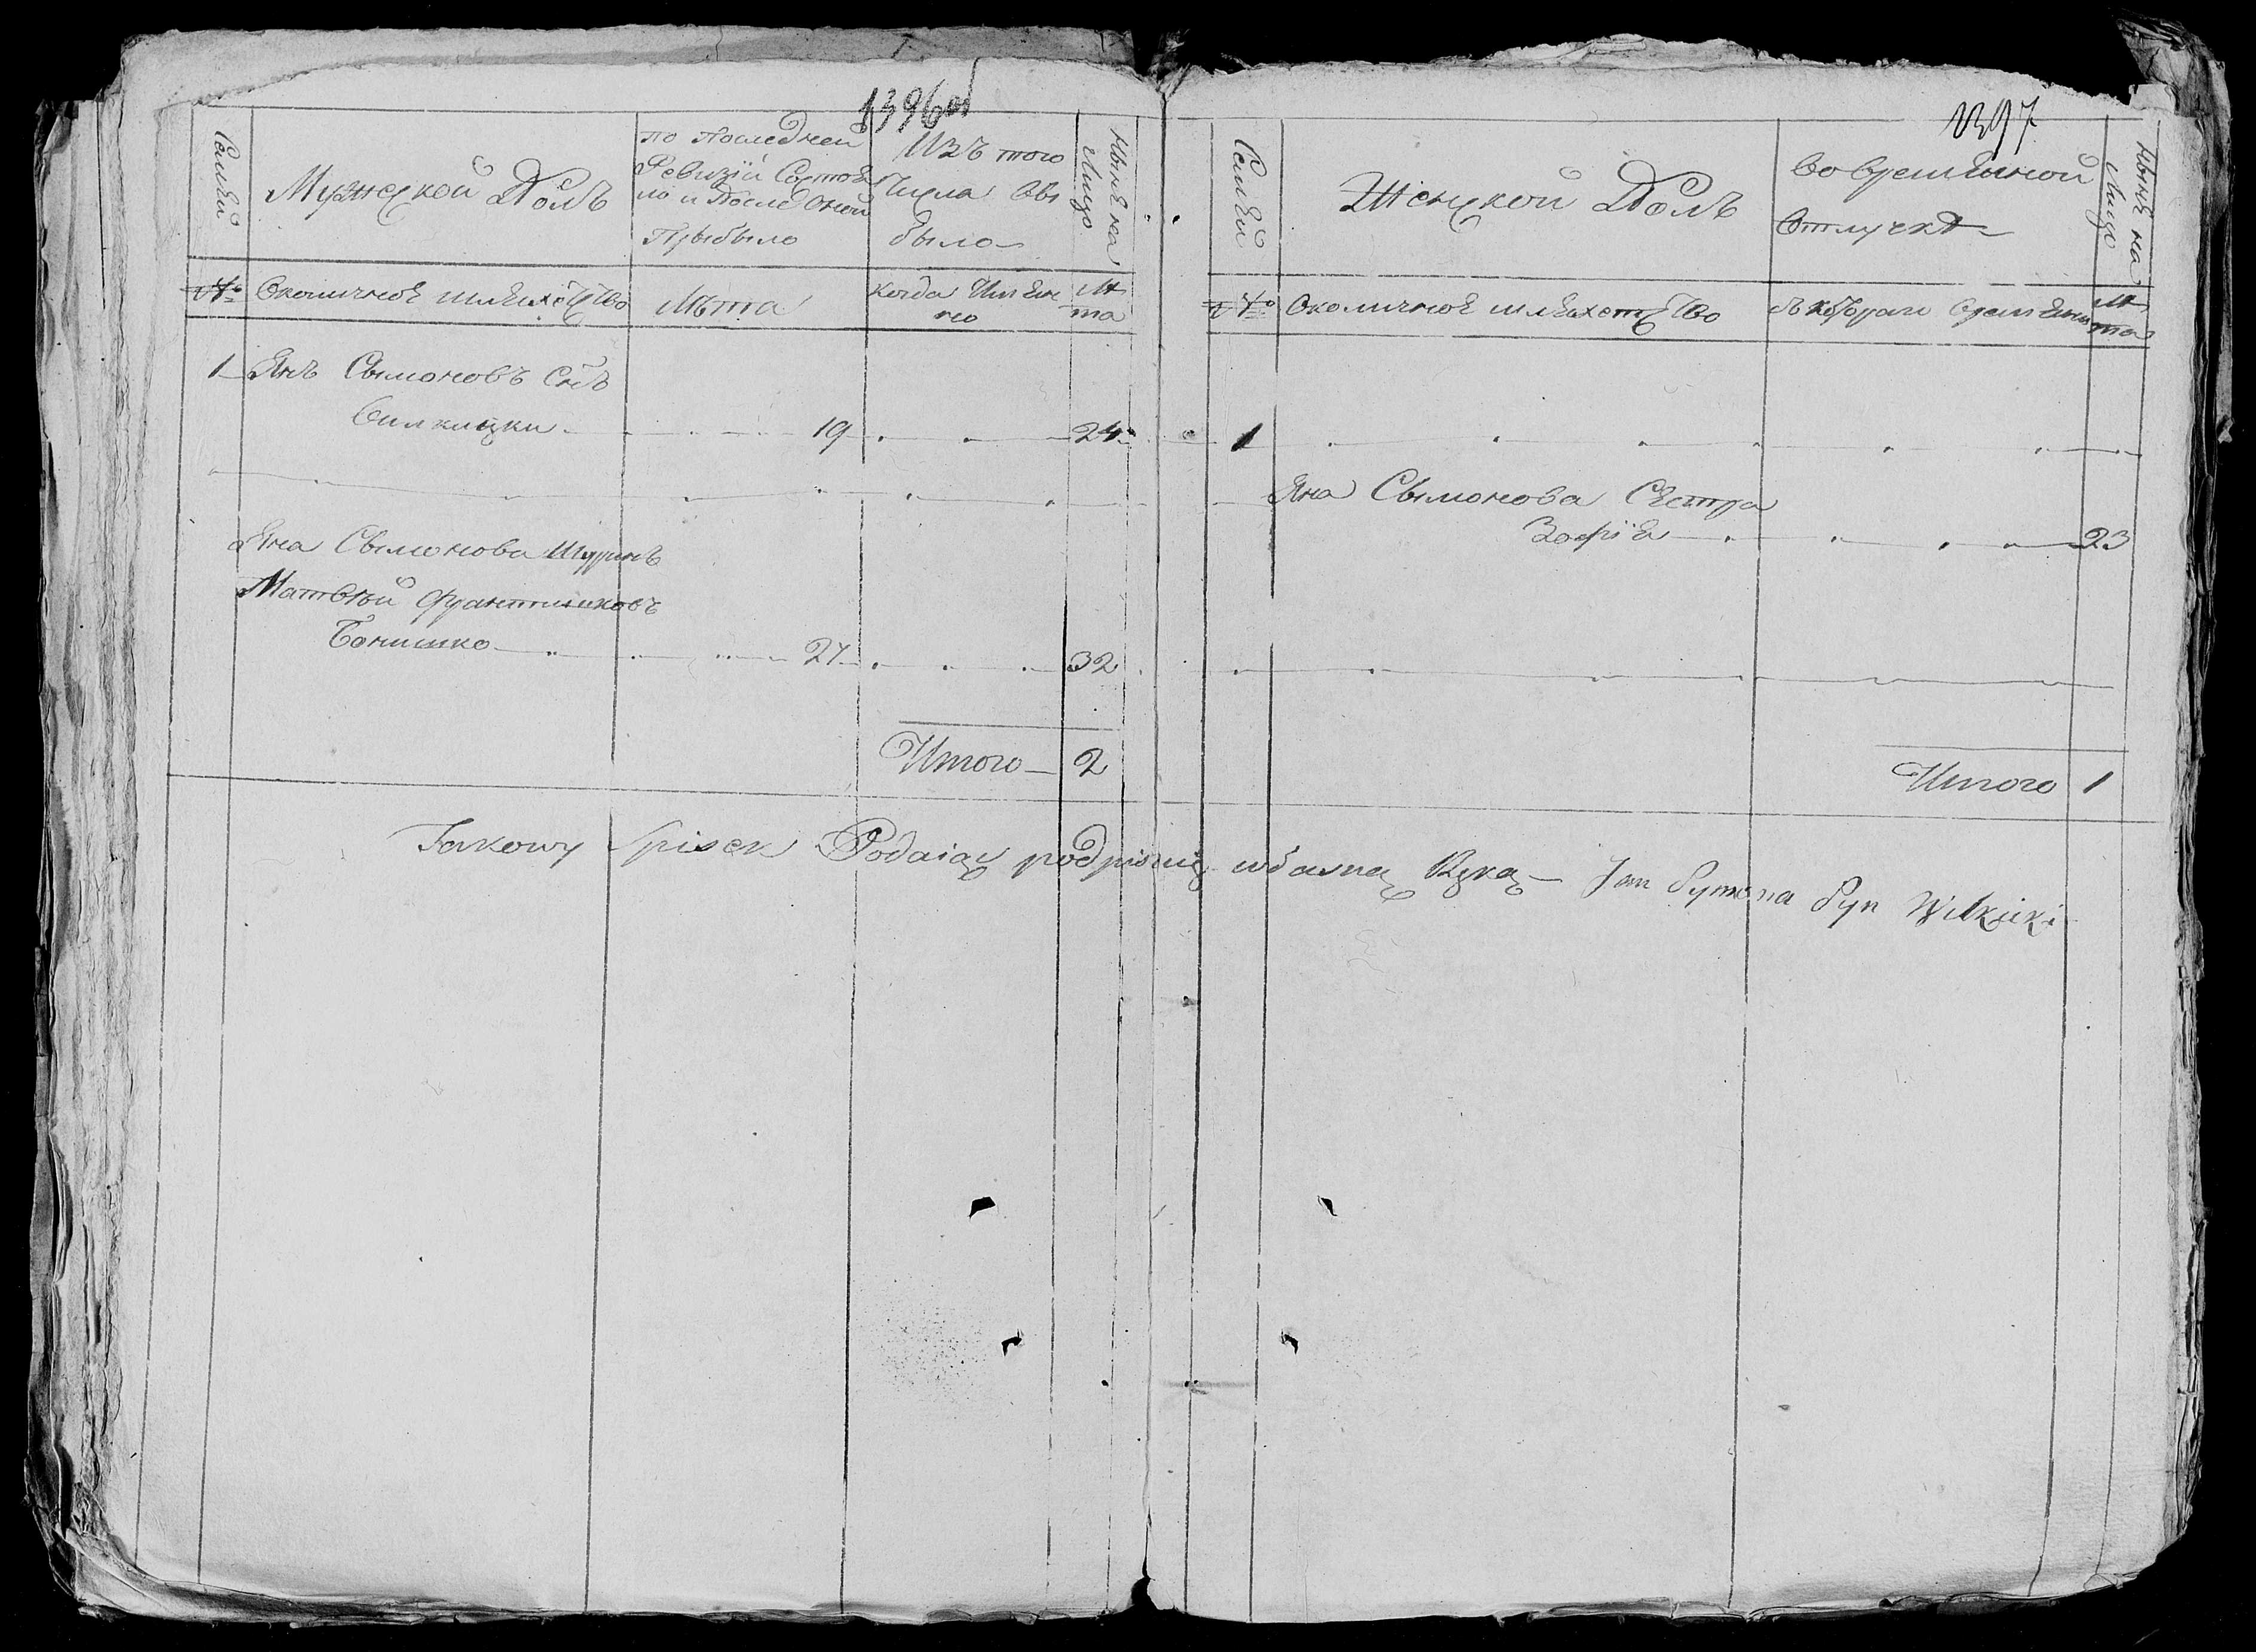 1396об
Семьи
Мужеской Полъ
по последней
Ревизіи Состоя
ло и После Оной
Прыбыло
Изъ того
Числа Вы
было
Нынѣ на
Лицо
№
Околичное шляхетство
Лѣта
когда Имян
но
Лѣ
та
1 Янъ Сымоновъ Снъ
Вилкицки 19 24
Яна Сымонова Шуринъ
Матвѣй Франтишковъ
Бонишко 27 32
Итого 2
1397
Семьи
Женской Полъ
Во Временной
Отлучкѣ
Нынѣ на
Лицо
№
Околичное шляхетство
съ которого времени
Лѣ
та
1
Яна Сымонова Сестра
Зофія 23
Итого 1
Takowy Spisek Podaiąc podpisuię własną Ręką Jan Symona Syn Wilkicki